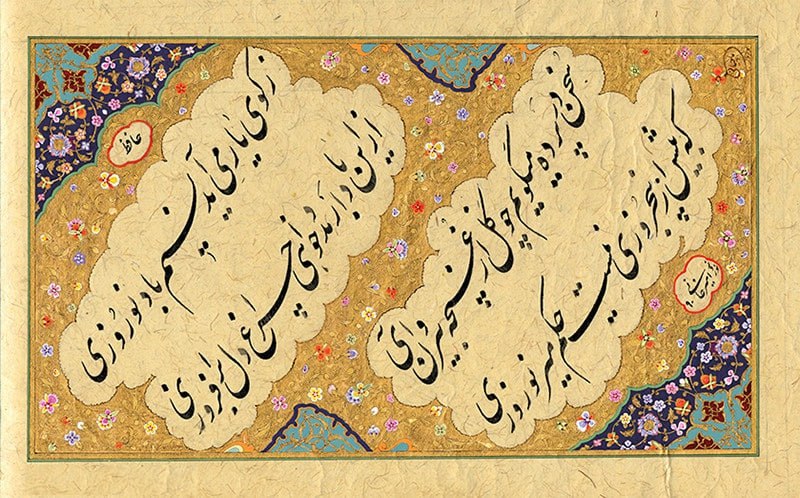 سخن در پرده میگویم چو گل از غنچه بیرون آی
که بیش از پنجروزی نیست حکم میر نوروزی
حافظ
ز کوی یار می آید نسیم باد نوروزی
از این باد ار مدد خواهی چراغ دل برافروزی